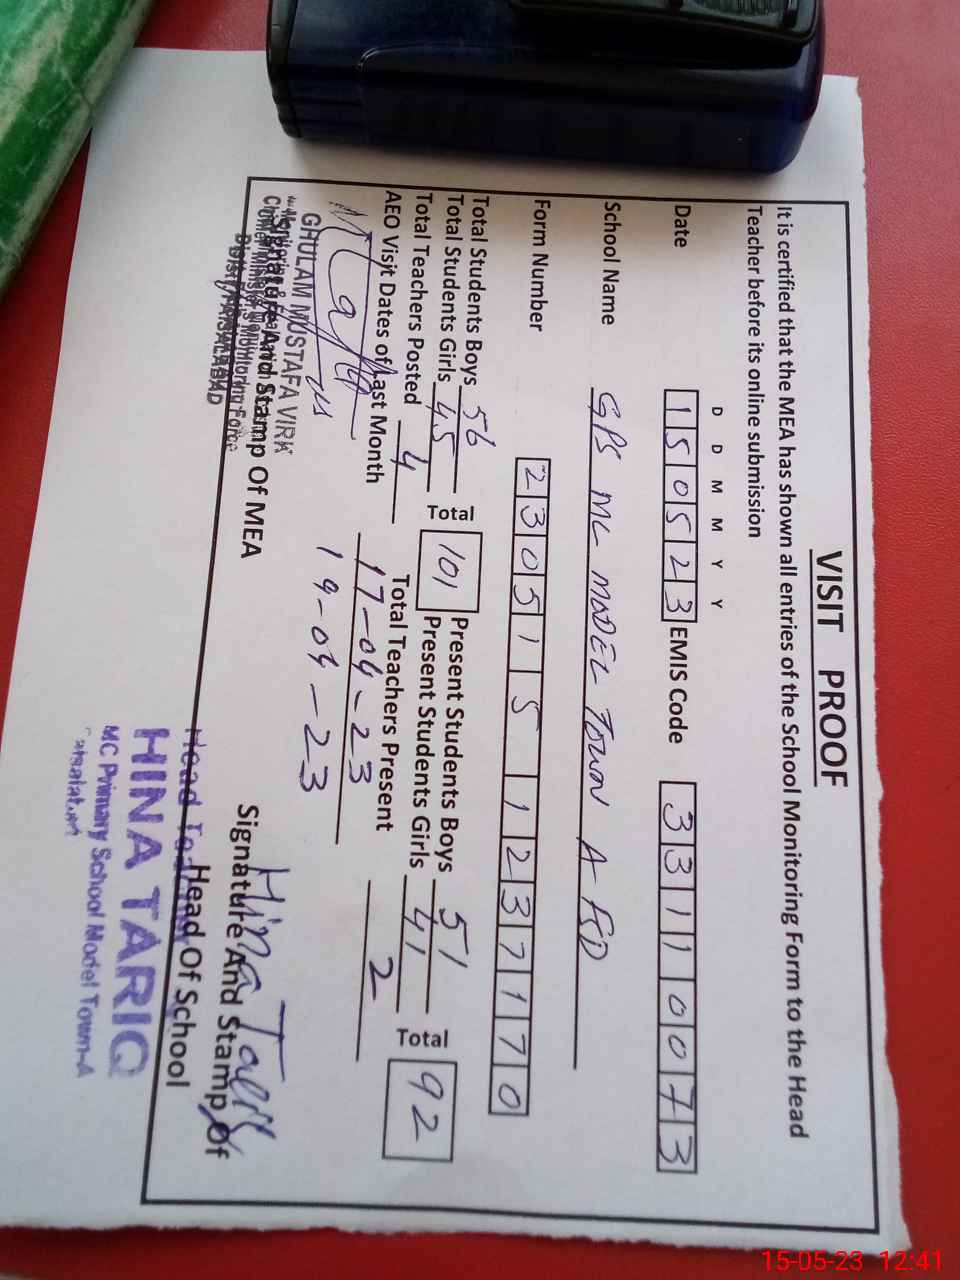 VISIT PROOF
It is certified that the MEA has shown all entries of the School Monitoring Form to the Head
Teacher before its online submission
D D M M Y Y
Date 150523 EMIS Code 33110073
School Name GPS MC MODEL TOWN A FSD
Form Number 2305151237170
Total Students Boys 56 Present Students Boys 51
Total Students Girls 45 Total 101 Present Students Girls 41 Total 92
Total Teachers Posted 4 Total Teachers Present 2
AEO Visit Dates of Last Month 17-04-23
19-04-23
GHULAM MUSTAFA VIRK
Signature And Stamp Of MEA
Hina Tariq
Signature And Stamp Of
Head Of School
HINA TARIQ
MC Primary School Model Town-A
15-05-23 12:41